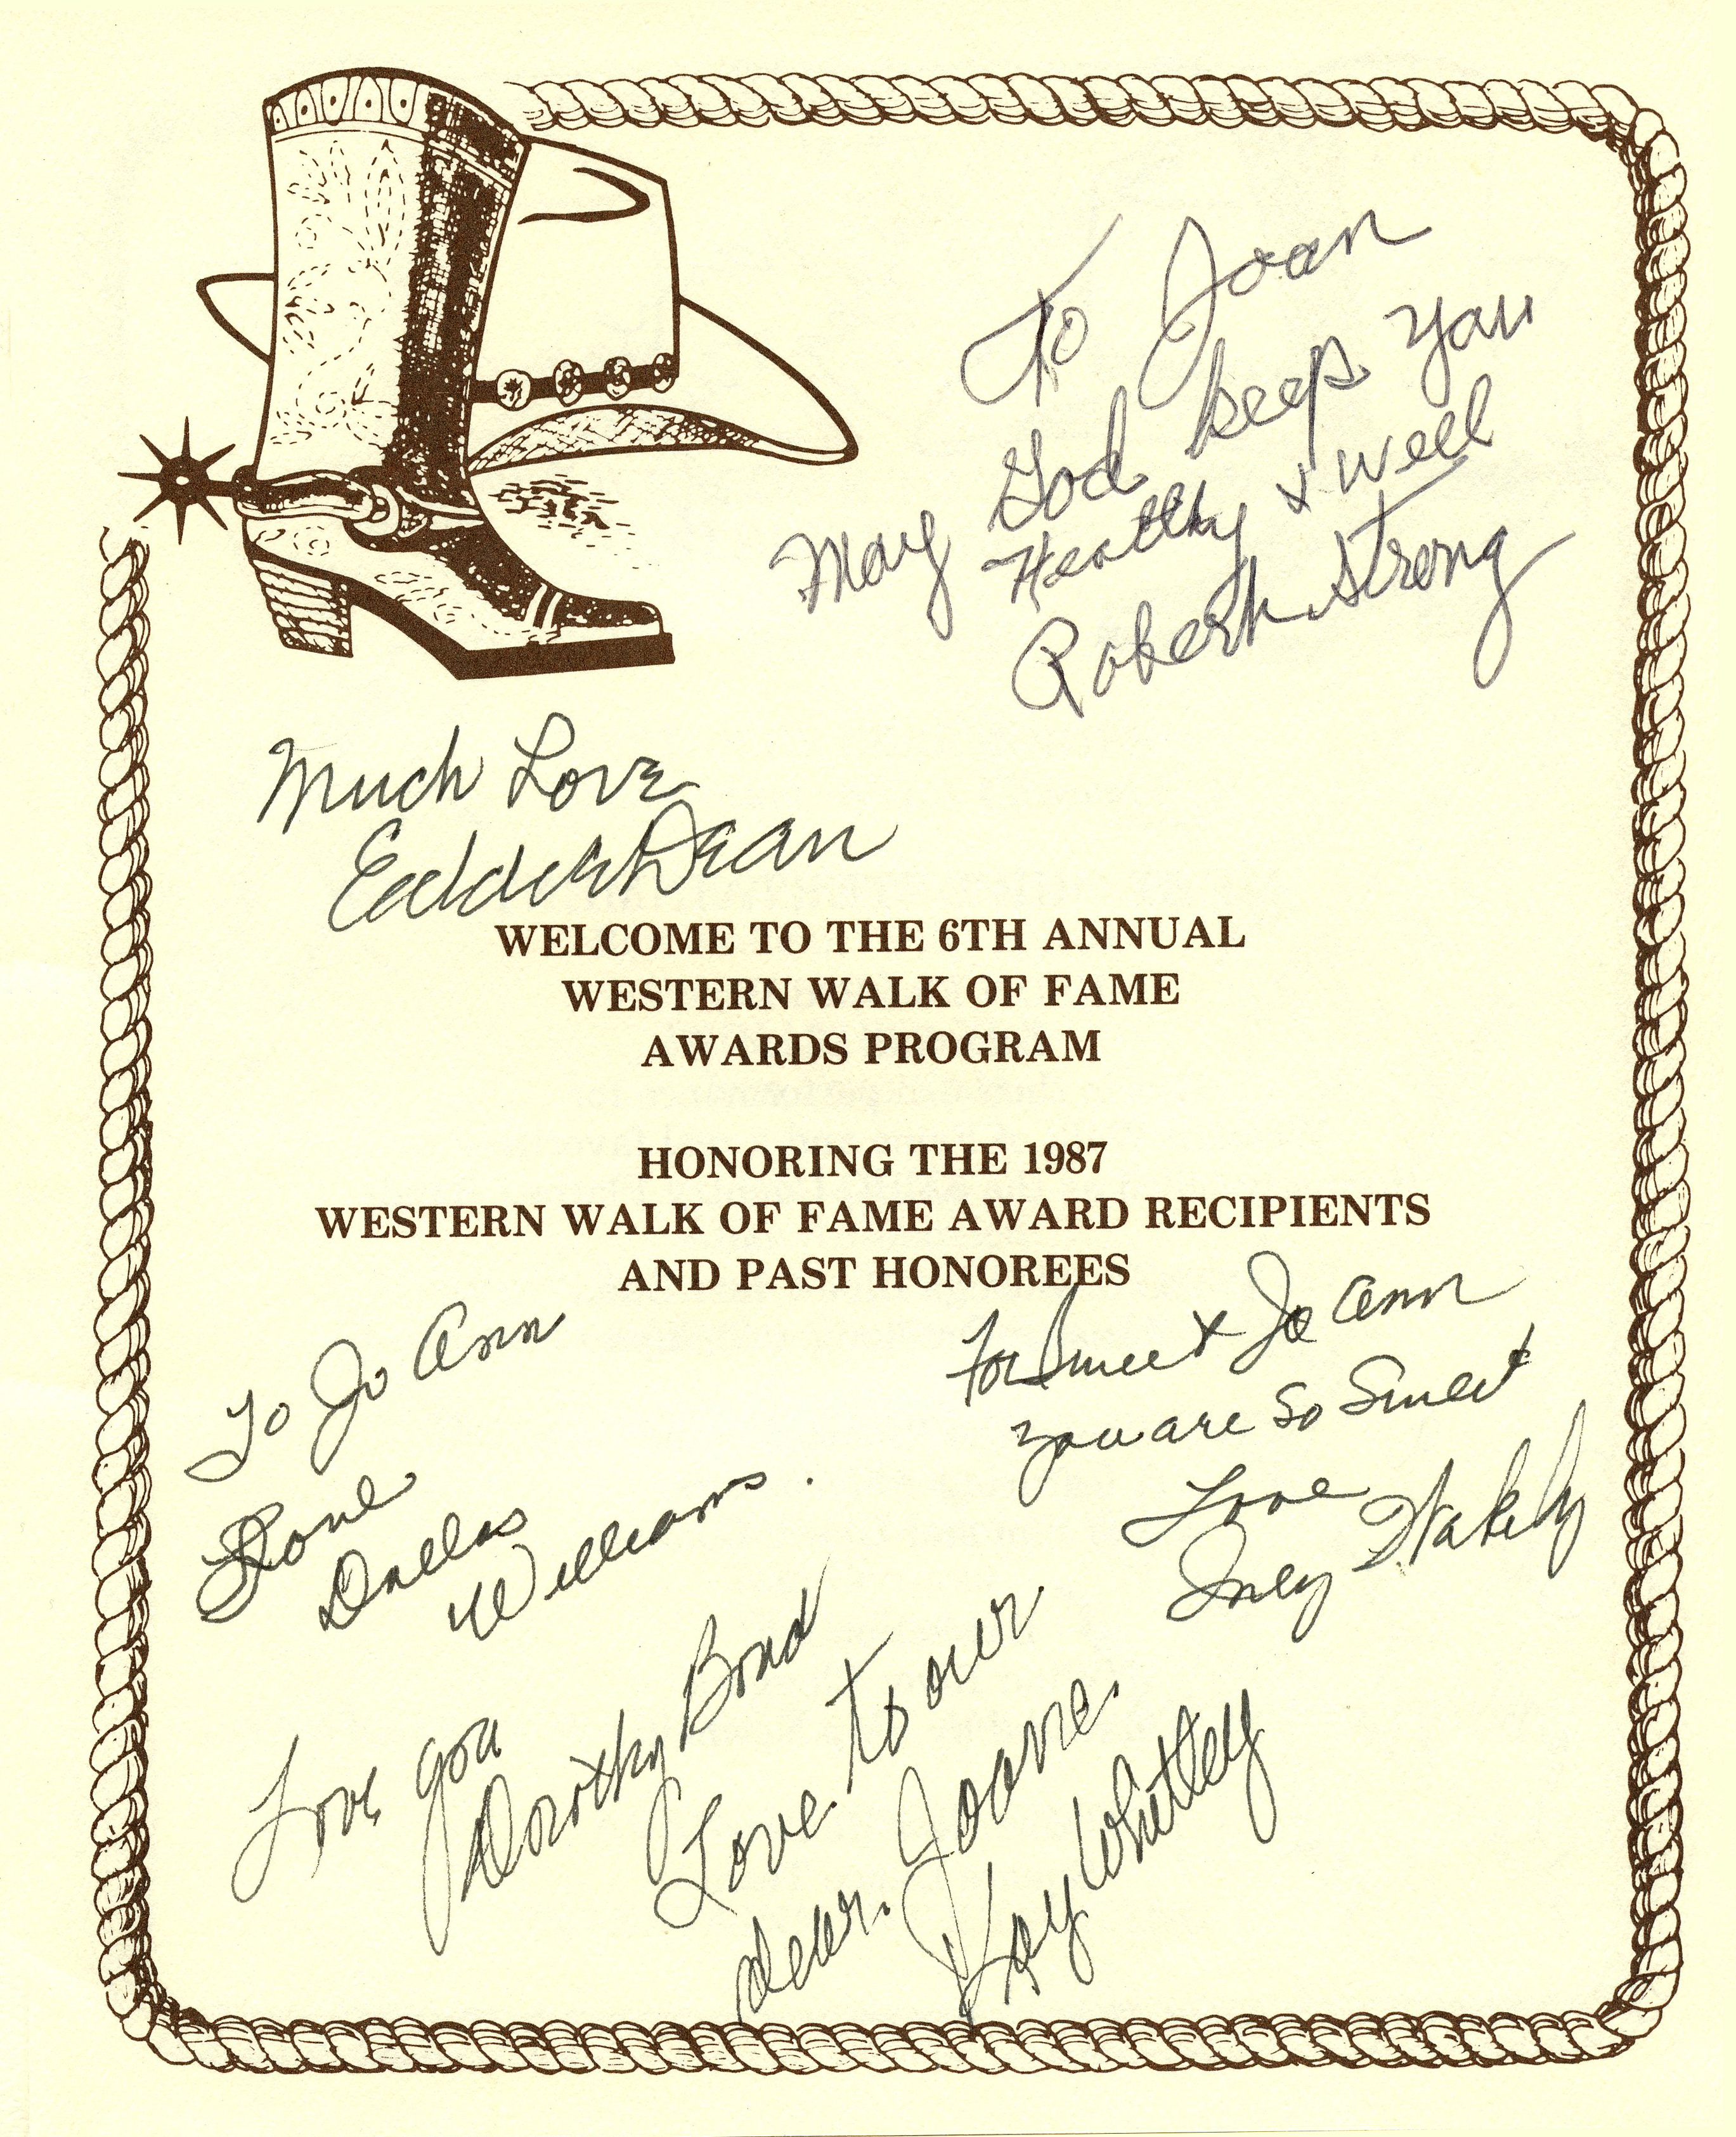 To Joan
May God keep you
Healthy & well
Robert Strong
Much Love
Eddie Dean
WELCOME TO THE 6TH ANNUAL
WESTERN WALK OF FAME
AWARDS PROGRAM
HONORING THE 1987
WESTERN WALK OF FAME AWARD RECIPIENTS
AND PAST HONOREES
To Jo Ann
Love
Dallas
Williams.
For Sweet Jo Ann
you are so Sweet
Love
Wakely
Love you
Dorothy Bond
Love to our
dear Joanne.
Kay Whitley